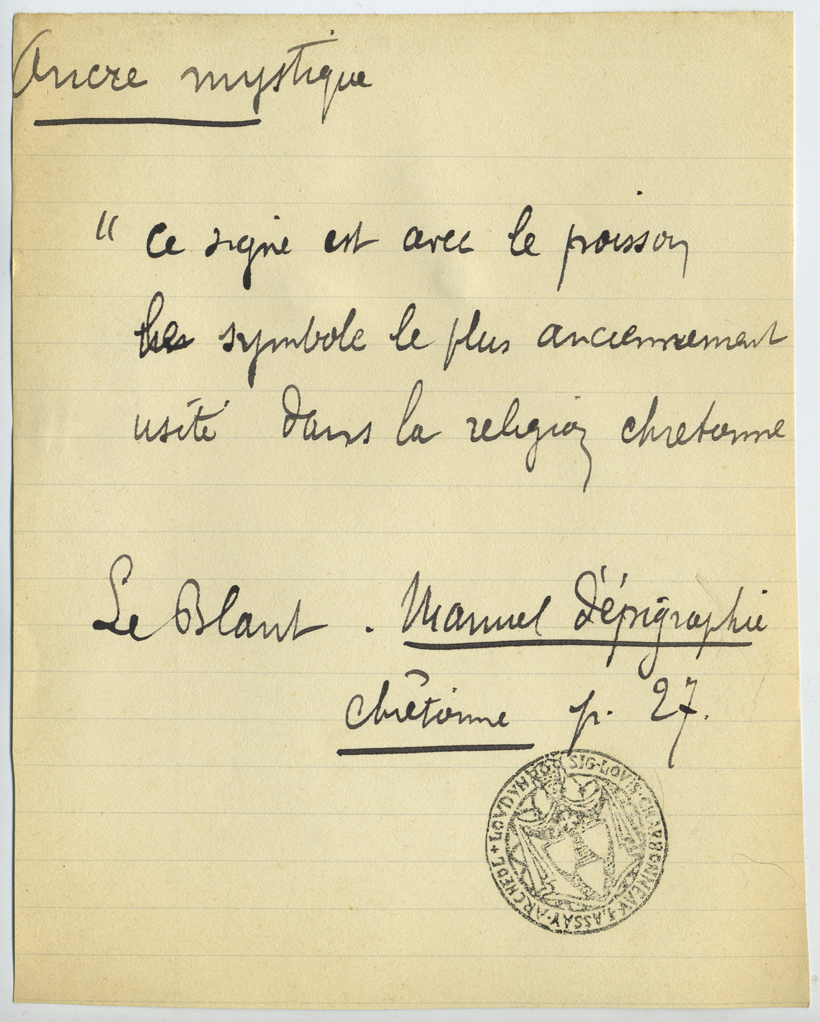 Ancre mystique
" Ce signe est avec le poisson
symbole le plus anciennement
usité dans la religion chretienne
Le Blant . Manuel d'épigraphie
chrétienne p. 27.
SIG·LOVIS·CHARBONNEAV·LASSAY·ARCHEOL+LOVDVN